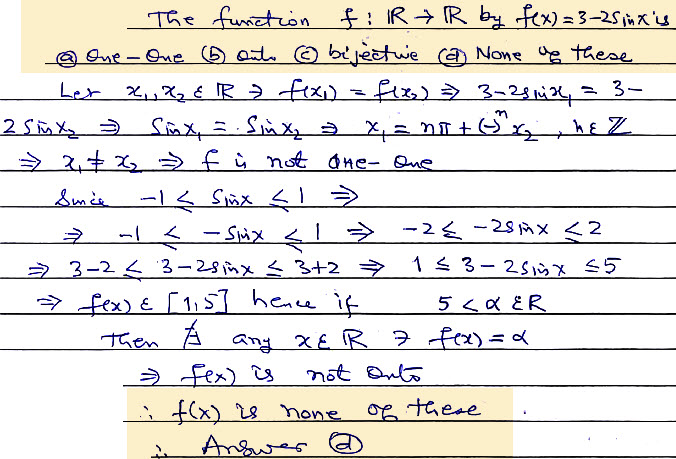 The function f : ℝ → ℝ by f(x) = 3-2Sinx is
ⓐ One-One ⓑ onto ⓒ bijective ⓓ None of these
Let x₁, x₂ ε ℝ ∋ f(x₁) = f(x₂) ⇒ 3-2sinx₁ = 3-
2 Sinx₂ ⇒ Sinx₁ = Sinx₂ ⇒ x₁ = nπ + (-)ⁿ x₂ , n ε ℤ
⇒ x₁ ≠ x₂ ⇒ f is not One-One
Since -1 ≤ Sinx ≤ 1 ⇒
⇒ -1 ≤ -Sinx ≤ 1 ⇒ -2 ≤ -2sinx ≤ 2
⇒ 3-2 ≤ 3-2sinx ≤ 3+2 ⇒ 1 ≤ 3-2sinx ≤ 5
⇒ f(x) ε [1,5] hence if 5 < α ε R
Then ∄ any x ε ℝ ∋ f(x) = α
⇒ f(x) is not Onto
∴ f(x) is none of these
∴ Answer ⓓ